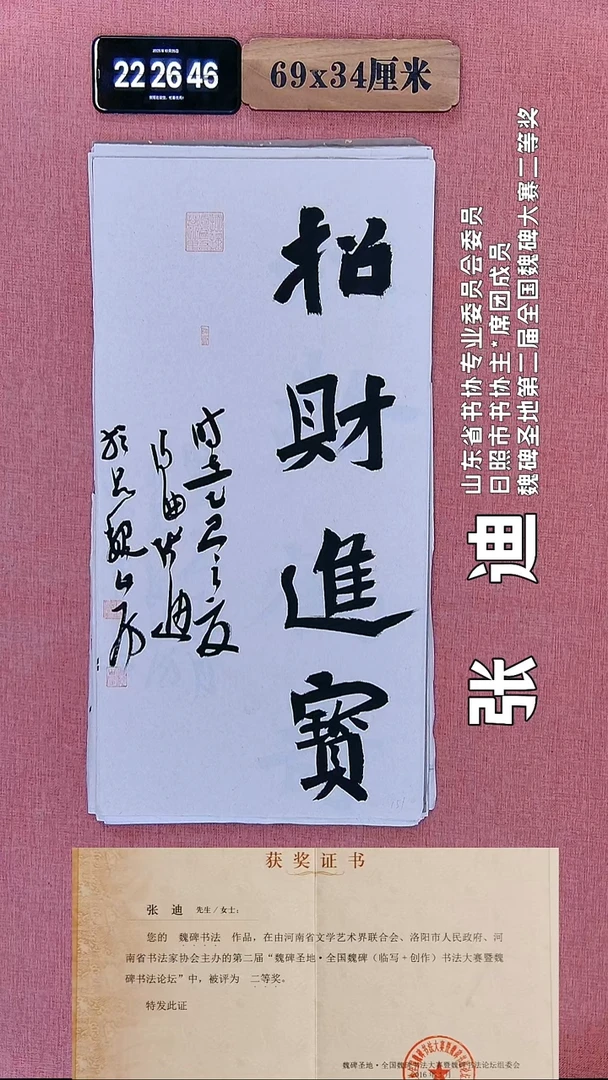 22 26 46
69x34厘米
招財進寶
时在乙巳之夏
张迪
山东省书协专业委员会委员
日照市书协主*席团成员
魏碑圣地第二届全国魏碑大赛二等奖
张 迪
获奖证书
张 迪 先生／女士：
您的 魏碑书法 作品，在由河南省文学艺术界联合会、洛阳市人民政府、河
南省书法家协会主办的第二届“魏碑圣地·全国魏碑（临写+创作）书法大赛暨魏
碑书法论坛”中，被评为 二等奖。
特发此证
魏碑圣地·全国魏碑书法大赛暨魏碑书法论坛组委会